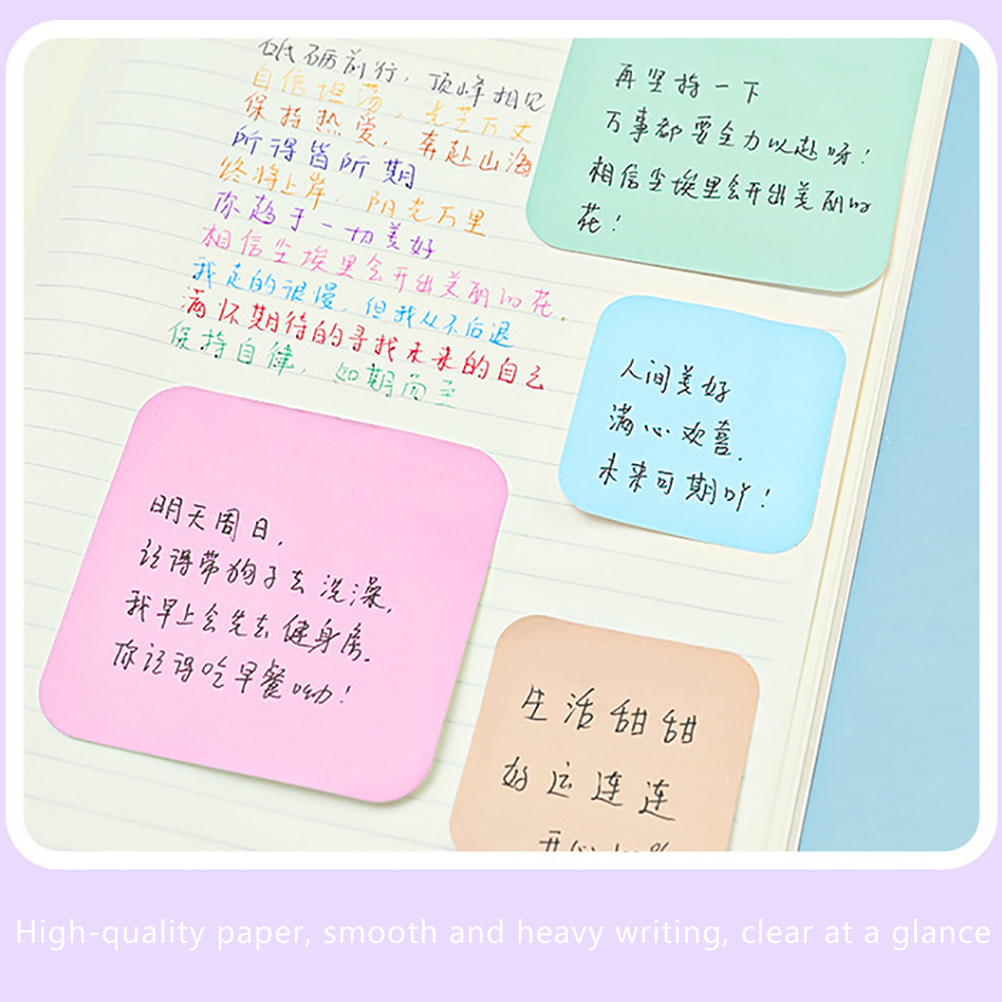 砥砺前行，顶峰相见
自信坦荡，光芒万丈
保持热爱，奔赴山海
所得皆所期
终将上岸，阳光万里
你趋于一切美好
相信尘埃里会开出美丽的花.
我走的很慢，但我从不后退
满怀期待的寻找未来的自己
保持自律，如期而至
再坚持一下
万事都要全力以赴呀！
相信尘埃里会开出美丽的
花！
人间美好
满心欢喜.
未来可期吖！
明天周日，
记得带狗子去洗澡，
我早上会先去健身房.
你记得吃早餐呦！
生活甜甜
好运连连
开心
High-quality paper, smooth and heavy writing, clear at a glance